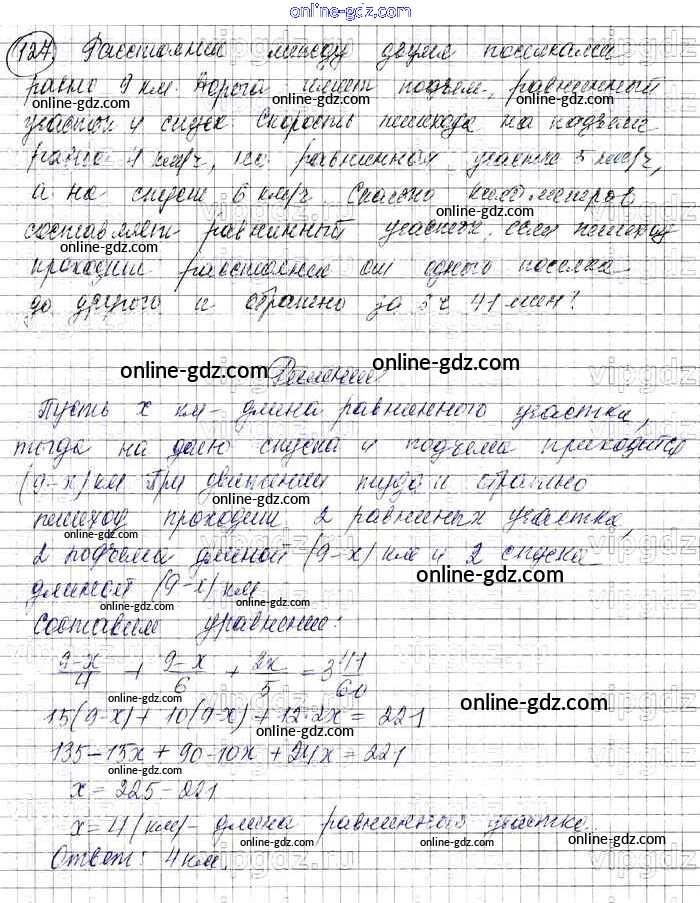 online-gdz.com
127. Расстояние между двумя поселками
равно 9 км. Дорога имеет подъем, равнинный
online-gdz.com online-gdz.com online-gdz.com
участок и спуск. Скорость пешехода на подъеме
равна 4 км/ч, на равнинном участке 5 км/ч,
online-gdz.com online-gdz.com
а на спуске 6 км/ч. Сколько километров
online-gdz.com
составляет равнинный участок, если пешеход
online-gdz.com
проходит расстояние от одного поселка
online-gdz.com
до другого и обратно за 3 ч 41 мин?
online-gdz.com online-gdz.com
Решение
Пусть x км - длина равнинного участка,
online-gdz.com
тогда на долю спуска и подъема приходится
online-gdz.com
(9-x) км При движении туда и обратно
online-gdz.com
пешеход проходит 2 равнинных участка,
online-gdz.com
2 подъема длиной (9-x) км и 2 спуска
online-gdz.com
длиной (9-x) км
online-gdz.com online-gdz.com
Составим уравнение:
9-x/4 + 9-x/6 + 2x/5 = 3 41/60
online-gdz.com online-gdz.com
15(9-x) + 10(9-x) + 12·2x = 221
online-gdz.com
135-15x + 90-10x + 24x = 221
online-gdz.com
x = 225-221
online-gdz.com
x = 4 (км) - длина равнинного участка.
Ответ: 4 км.
online-gdz.com
vipgdz.ru